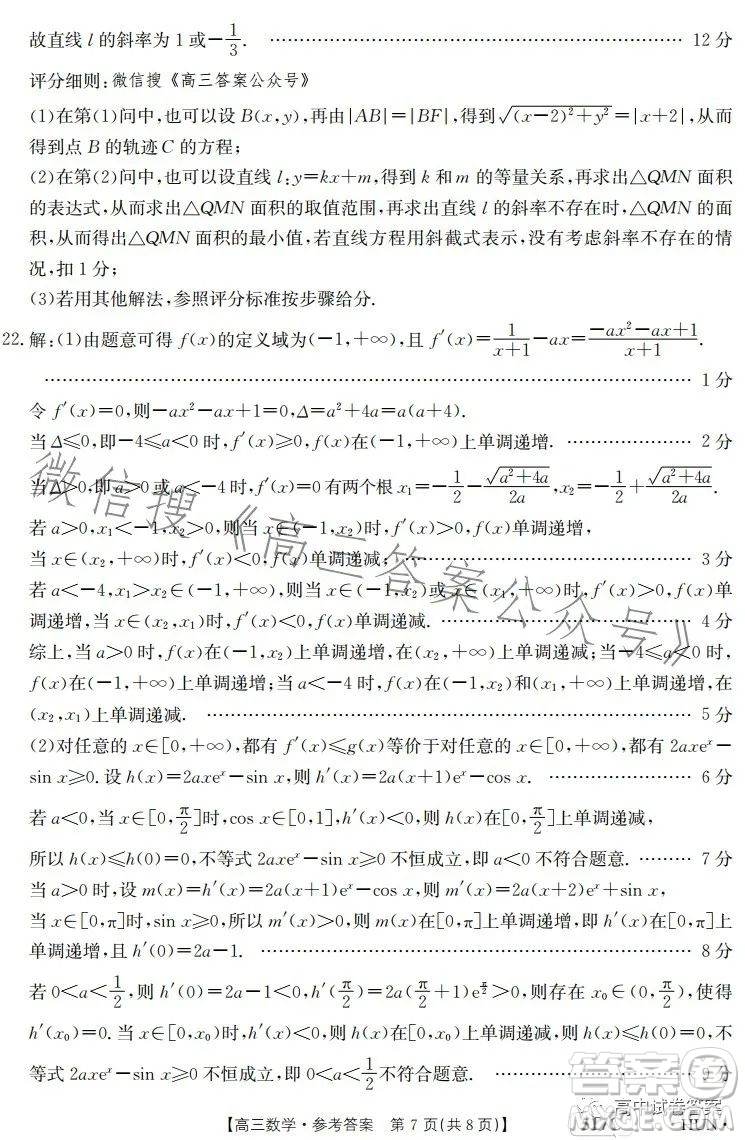 故直线 l 的斜率为 1 或−1/3. …… 12 分
评分细则:微信搜《高三答案公众号》
(1)在第(1)问中,也可以设 B(x,y),再由|AB|=|BF|,得到√((x−2)²+y²)=|x+2|,从而
得到点 B 的轨迹 C 的方程;
(2)在第(2)问中,也可以设直线 l:y=kx+m,得到 k 和 m 的等量关系,再求出△QMN 面积
的表达式,从而求出△QMN 面积的取值范围,再求出直线 l 的斜率不存在时,△QMN 的面
积,从而得出△QMN 面积的最小值,若直线方程用斜截式表示,没有考虑斜率不存在的情
况,扣 1 分;
(3)若用其他解法,参照评分标准按步骤给分.
22. 解:(1)由题意可得 f(x)的定义域为(−1,+∞),且 f′(x)=1/(x+1)−ax=(−ax²−ax+1)/(x+1).
…… 1 分
令 f′(x)=0,则−ax²−ax+1=0,Δ=a²+4a=a(a+4).
当 Δ≤0,即−4≤a<0 时,f′(x)≥0,f(x)在(−1,+∞)上单调递增. …… 2 分
当 Δ>0,即 a>0 或 a<−4 时,f′(x)=0 有两个根 x₁=−1/2−√(a²+4a)/(2a),x₂=−1/2+√(a²+4a)/(2a).
若 a>0,x₁<−1,x₂>0,则当 x∈(−1,x₂)时,f′(x)>0,f(x)单调递增,
当 x∈(x₂,+∞)时,f′(x)<0,f(x)单调递减; …… 3 分
若 a<−4,x₁>x₂∈(−1,+∞),当 x∈(−1,x₂)或 x∈(x₁,+∞)时,f′(x)>0,f(x)单
调递增,当 x∈(x₂,x₁)时,f′(x)<0,f(x)单调递减. …… 4 分
综上,当 a>0 时,f(x)在(−1,x₂)上单调递增,在(x₂,+∞)上单调递减;当−4≤a<0 时,
f(x)在(−1,+∞)上单调递增;当 a<−4 时,f(x)在(−1,x₂)和(x₁,+∞)上单调递增,在
(x₂,x₁)上单调递减. …… 5 分
(2)对任意的 x∈[0,+∞),都有 f′(x)≤g(x)等价于对任意的 x∈[0,+∞),都有 2axeˣ−
sin x≥0.设 h(x)=2axeˣ−sin x,则 h′(x)=2a(x+1)eˣ−cos x. …… 6 分
若 a<0,当 x∈[0,π/2]时,cos x∈[0,1],h′(x)<0,则 h(x)在[0,π/2]上单调递减,
所以 h(x)≤h(0)=0,不等式 2axeˣ−sin x≥0 不恒成立,即 a<0 不符合题意. …… 7 分
当 a>0 时,设 m(x)=h′(x)=2a(x+1)eˣ−cos x,则 m′(x)=2a(x+2)eˣ+sin x,
当 x∈[0,π]时,sin x≥0,所以 m′(x)>0,则 m(x)在[0,π]上单调递增,即 h′(x)在[0,π]上
单调递增,且 h′(0)=2a−1. …… 8 分
若 0<a<1/2,则 h′(0)=2a−1<0,h′(π/2)=2a(π/2+1)e^(π/2)>0,则存在 x₀∈(0,π/2),使得
h′(x₀)=0.当 x∈(0,x₀)时,h′(x)<0,则 h(x)在(0,x₀)上单调递减,则 h(x)≤h(0)=0,不
等式 2axeˣ−sin x≥0 不恒成立,即 0<a<1/2不符合题意. …… 9 分
【高三数学·参考答案 第 7 页(共 8 页)】
·317C·HUN·
微信搜《高三答案公众号》
高中试卷答案